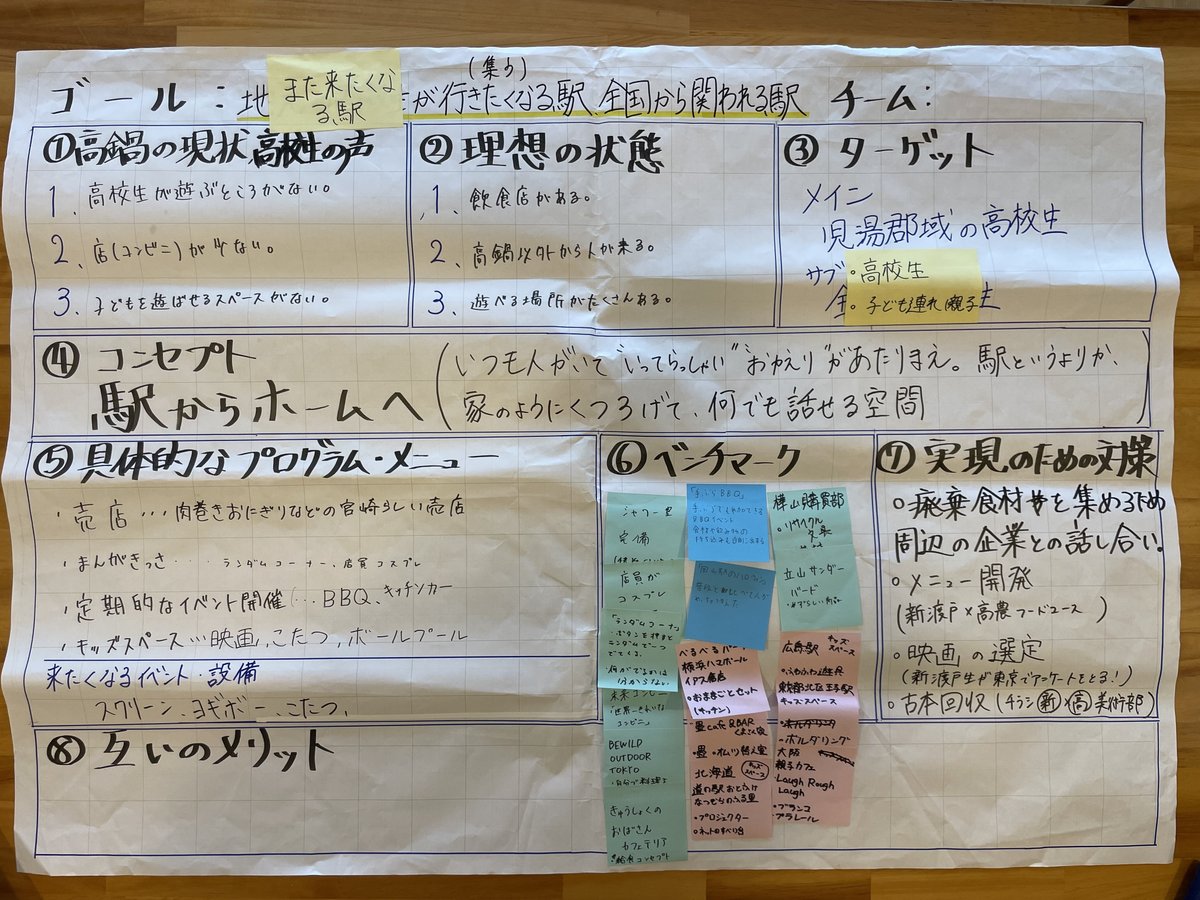 (集う)
ゴール：地
また来たくな
る駅
が行きたくなる駅、全国から関われる駅
チーム：
①高鍋の現状 高校生の声
1、高校生が遊ぶところがない。
2、店(コンビニ)が少ない。
3、子どもを遊ばせるスペースがない。
②理想の状態
1、飲食店がある。
2、高鍋以外から人が来る。
3、遊べる場所がたくさんある。
③ターゲット
メイン
児湯郡域の高校生
サブ
・高校生
・子ども連れ親子
④コンセプト
駅からホームへ
(いつも人がいて"いってらっしゃい""おかえり"があたりまえ。駅というよりか、
家のようにくつろげて、何でも話せる空間)
⑤具体的なプログラム・メニュー
・売店…肉巻きおにぎりなどの宮崎らしい売店
・まんがきっさ…ランダムコーナー、店員コスプレ
・定期的なイベント開催…BBQ、キッチンカー
・キッズスペース…映画、こたつ、ボールプール
来たくなるイベント・設備
スクリーン、ヨギボー、こたつ、
⑥ベンチマーク
シャワー室
完備
店員が
コスプレ
「ランダムコーナー」
・ボタンを押すと
ランダムで一つ
でてくる。
・何がでるかは
分からない
未来コンビニ
「世界一きれいな
コンビニ」
BEWILD
OUTDOOR
TOKYO
・自分で料理する
きゅうしょくの
おばさん
カフェテリア
・給食コンセプト
「手ぶらBBQ」
BBQイベント
横浜ハマボール
イアス店
・おままごとセット
(キッチン)
畳cafe&BAR
・畳・オムツ替え室
北海道 キッズスペース
道の駅おとふけ
なつぞらのふる里
・プロジェクター
・ネットのすべり台
樺山購買部
・リサイクル
文庫
立山サンダー
バード
広島駅 キッズスペース
・ふわふわ遊具
東京都北区王子駅
キッズスペース
・ボルダリング
大阪
親子カフェ
Laugh Rough
Laugh
・ブランコ
・プラレール
⑦実現のための対策
○廃棄食材を集めるため
周辺の企業との話し合い。
○メニュー開発
(新渡戸×高農フードコース)
○映画の選定
(新渡戸生が東京でアンケートをとる！)
○古本回収(チラシ 新×高 美術部)
⑧互いのメリット